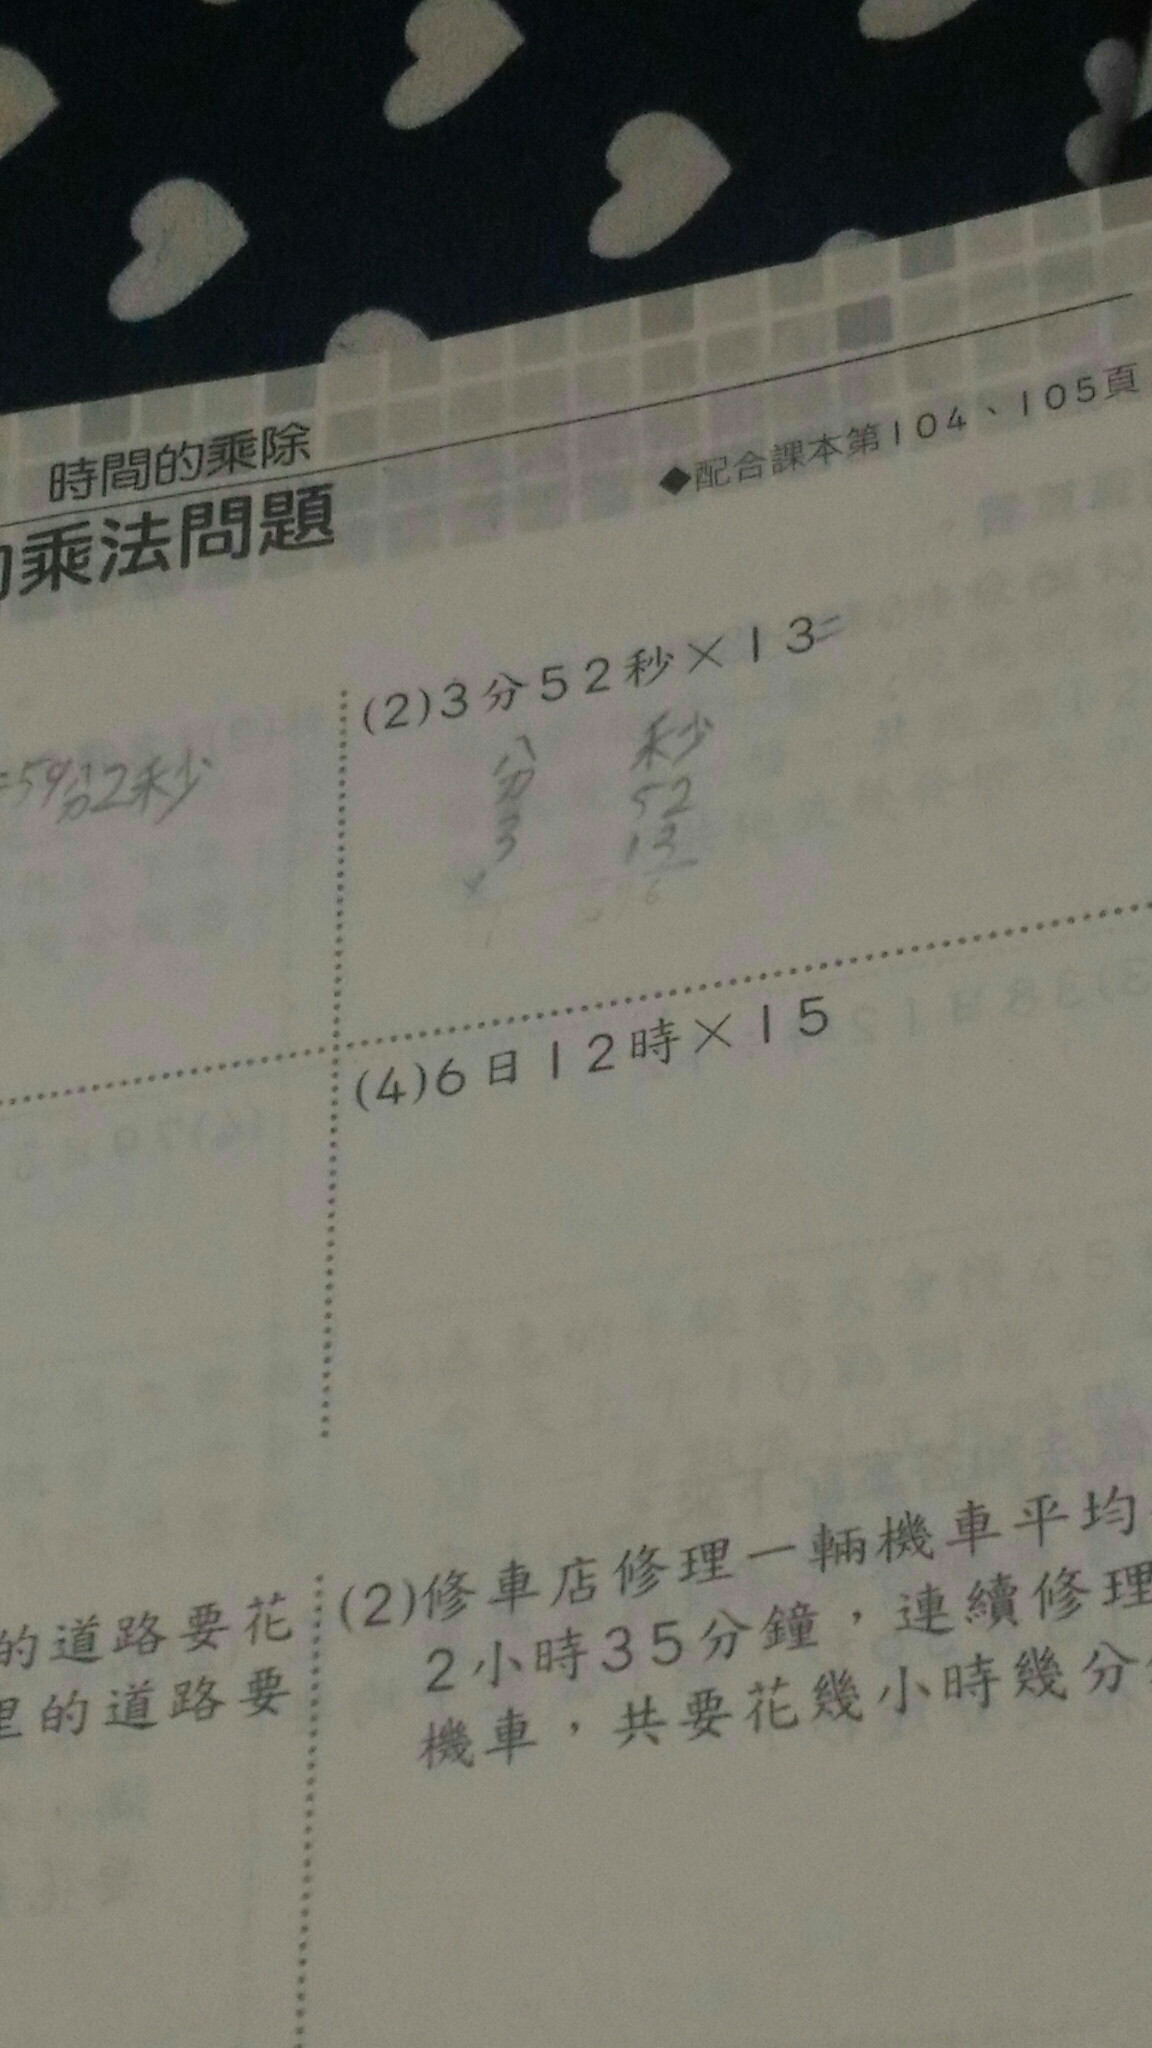 時間的乘除
乘法問題
◆配合課本第104、105頁
=59分12秒
(2)3分52秒×13=
分 秒
3 52
× 13
(4)6日12時×15
的道路要花
里的道路要
(2)修車店修理一輛機車平均
2小時35分鐘，連續修理
機車，共要花幾小時幾分